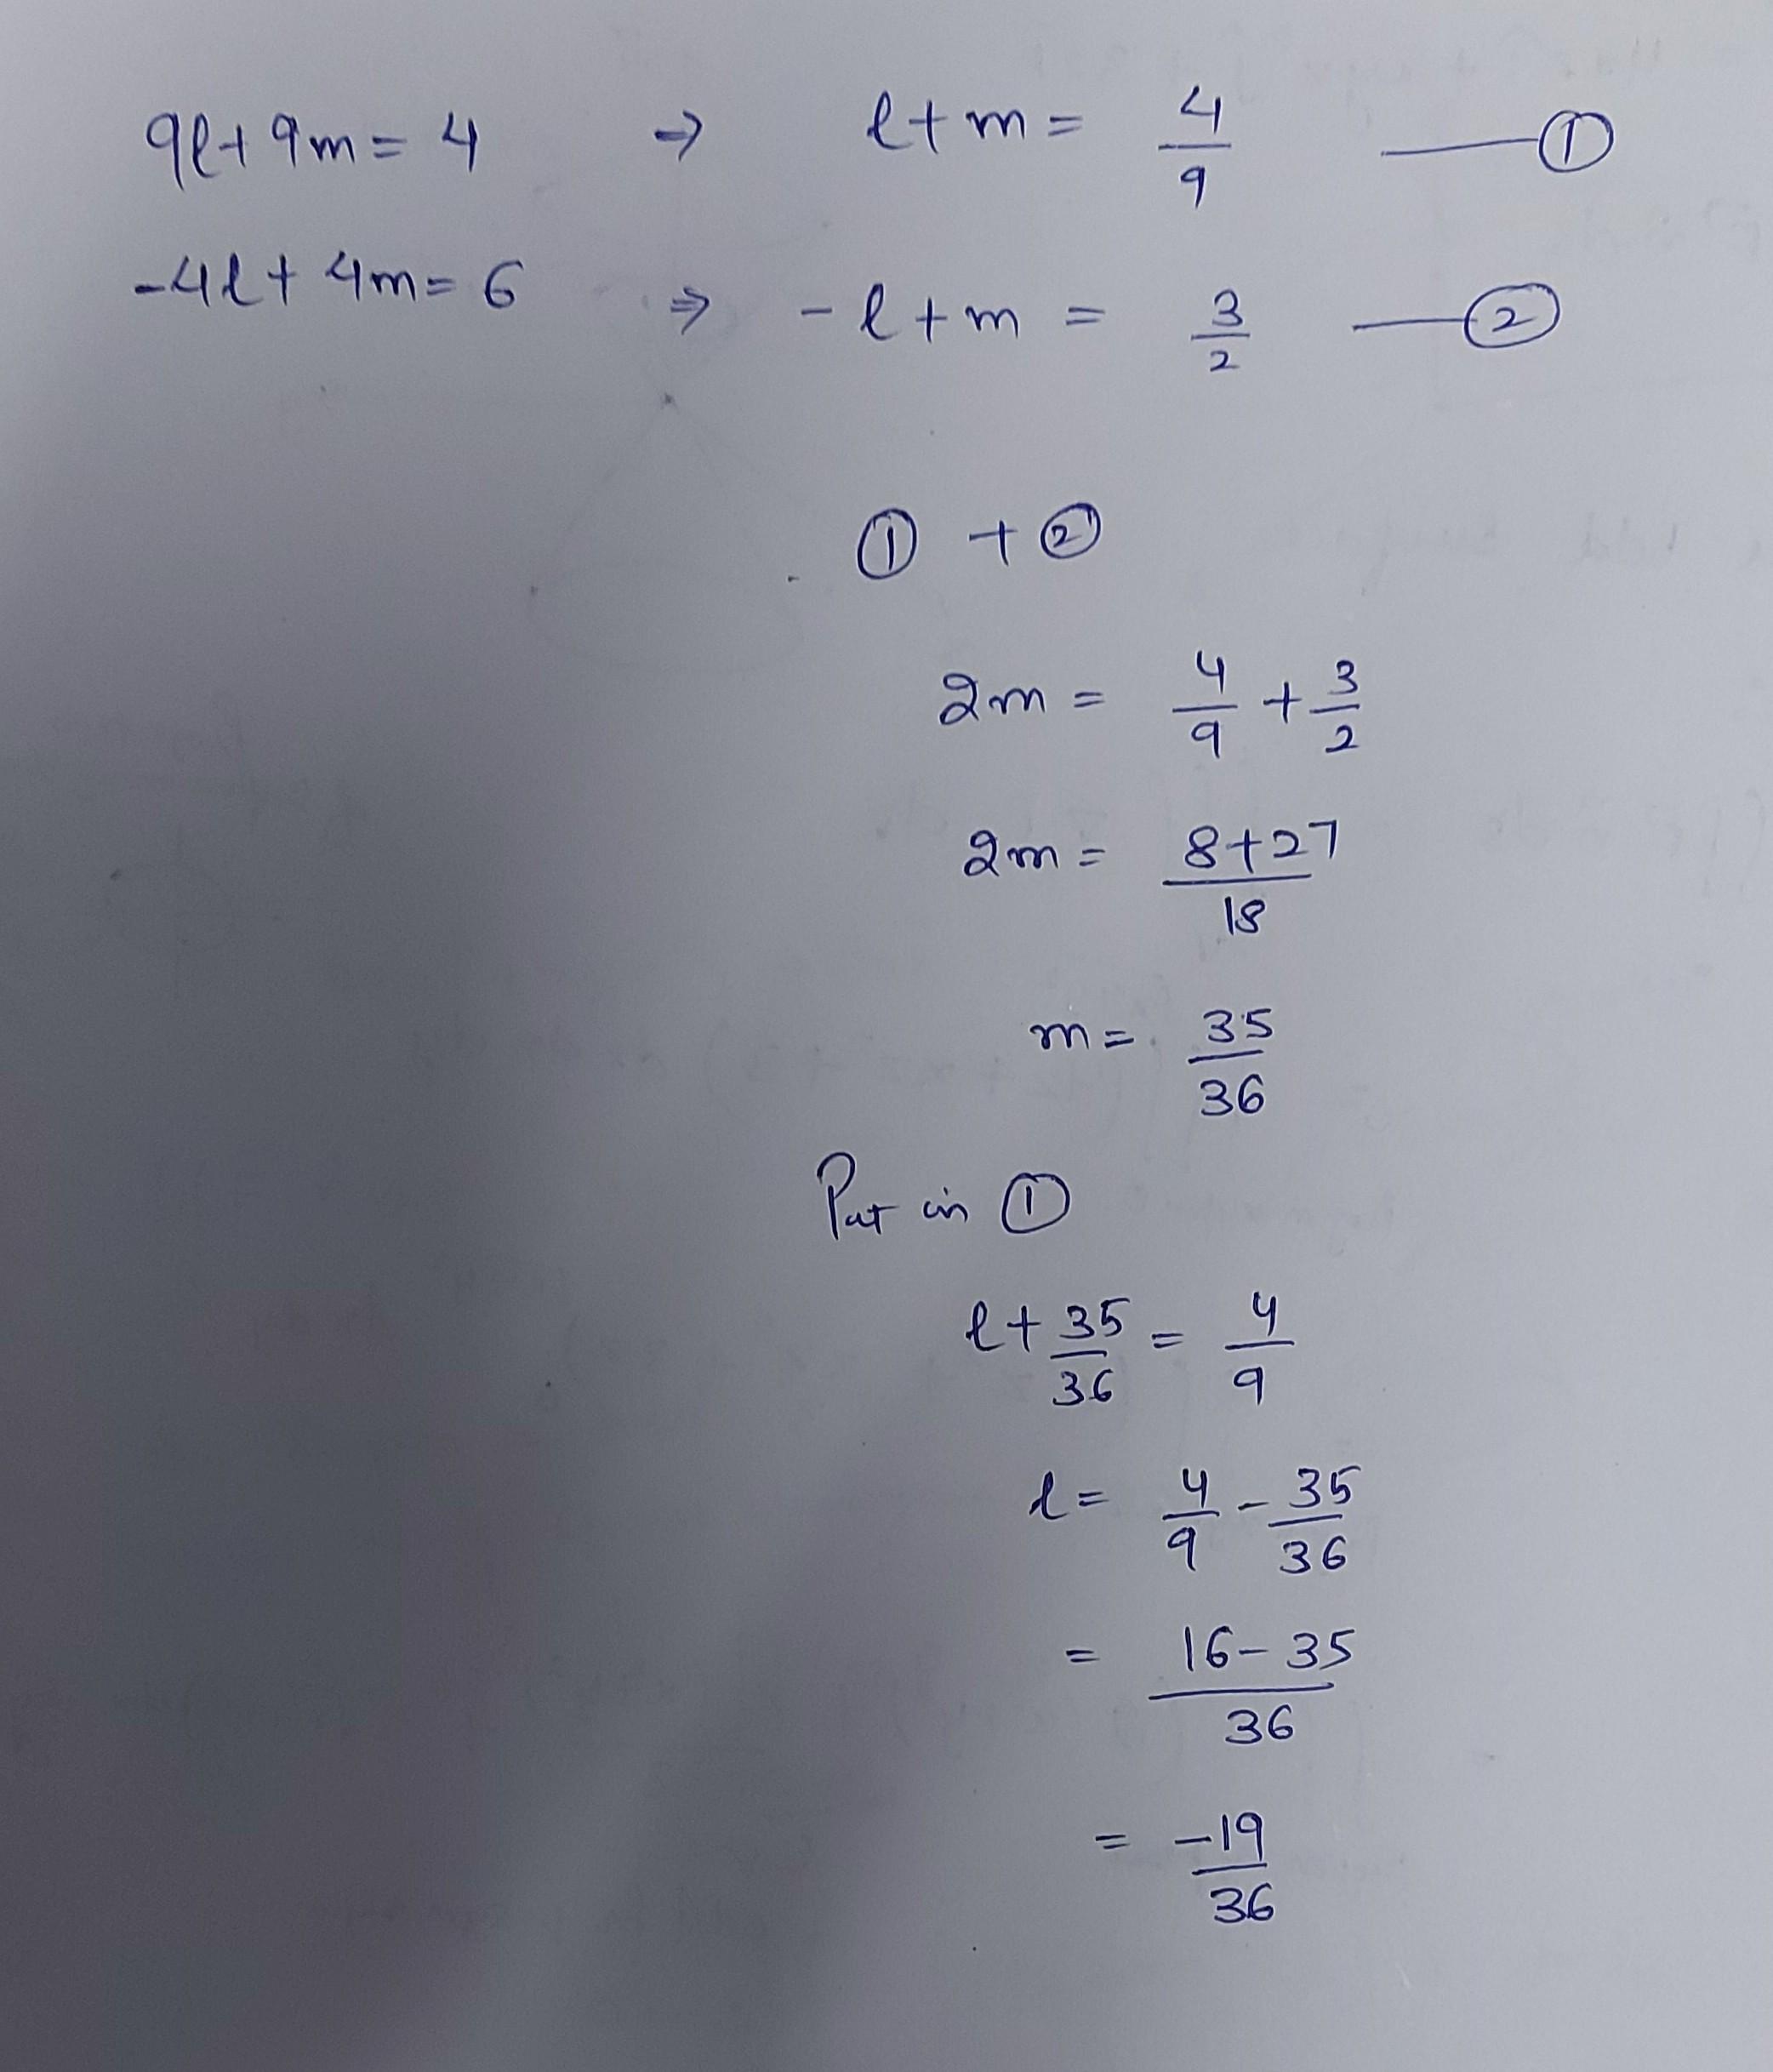 9l + 9m = 4 → l + m = 4/9 —①
-4l + 4m = 6 ⇒ - l + m = 3/2 —②
① + ②
2m = 4/9 + 3/2
2m = 8+27/18
m = 35/36
Put in ①
l + 35/36 = 4/9
l = 4/9 - 35/36
= 16-35/36
= -19/36